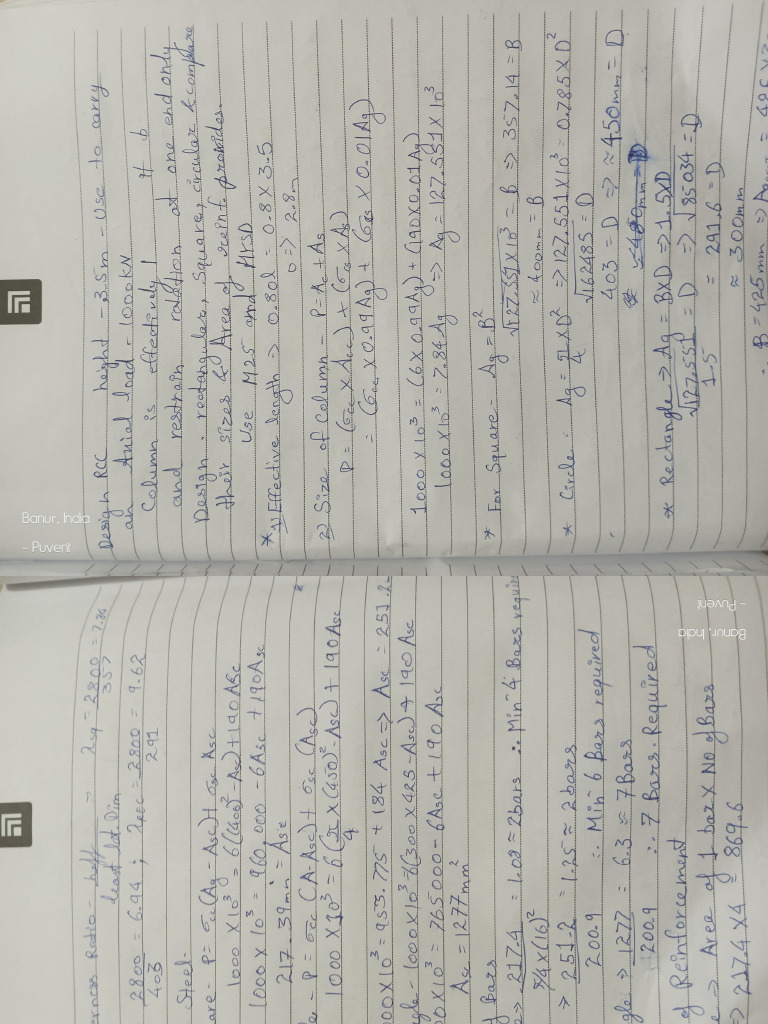 Design RCC height - 3.5m - Use to carry
an Axial load - 1000kN
Column is effectively
and restrain rotation at one end only
Design rectangular, square, circular & compare
their sizes & Area of reinf. provides.
Use M25 and HYSD
* 1) Effective length => 0.80l = 0.8 X 3.5
=> 2.8m
2) Size of Column - P = Ac + As
P = (σcc X Acc) + (σcc X As)
= (σcc X 0.99Ag) + (σcs X 0.01Ag)
1000 X 10³ = (6 X 0.99Ag) + (190 X 0.01Ag)
1000 X 10³ = 7.84 Ag => Ag = 127.551 X 10³
* For Square - Ag = B²
√127.551 X 10³ = B => 357.14 = B
≈ 400mm = B
* Circle - Ag = π/4 X D² => 127.551 X 10³ = 0.785 X D²
√162485 = D
403 = D => ≈ 450mm = D
* Rectangle => Ag = B X D => 1.5 X D
√127.551/1.5 = D => √85034 = D
= 291.6 = D
≈ 300mm
∴ B = 425mm =>
Banur, India
- Puvent
erness Ratio - leff / least lat Dim - λsq = 2800/357 = 7.84
2800/403 = 6.94 ; λrec = 2800/291 = 9.62
Steel -
are - P = σcc (Ag - Asc) + σsc Asc
1000 X 10³ = 6((400)² - Asc) + 190 Asc
1000 X 10³ = 960,000 - 6Asc + 190Asc
217.39mm² = Asc
le - P = σcc (A - Asc) + σsc (Asc)
1000 X 10³ = 6(π/4 X (450)² - Asc) + 190 Asc
00 X 10³ = 953.775 + 184 Asc => Asc = 251.2
gle - 1000 X 10³ = 6(300 X 425 - Asc) + 190 Asc
00 X 10³ = 765000 - 6Asc + 190 Asc
Asc = 1277mm²
of Bars
=> 217.4 / π/4 X (16)² = 1.08 ≈ 2bars ∴ Min 4 Bars requir
=> 251.2/200.9 = 1.25 ≈ 2 bars
∴ Min 6 Bars required
gle => 1277/200.9 = 6.3 ≈ 7 Bars
∴ 7 Bars. Required
of Reinforcement
e => Area of 1 bar X No of Bars
=> 217.4 X 4 = 869.6
Banur, India
- Puvent